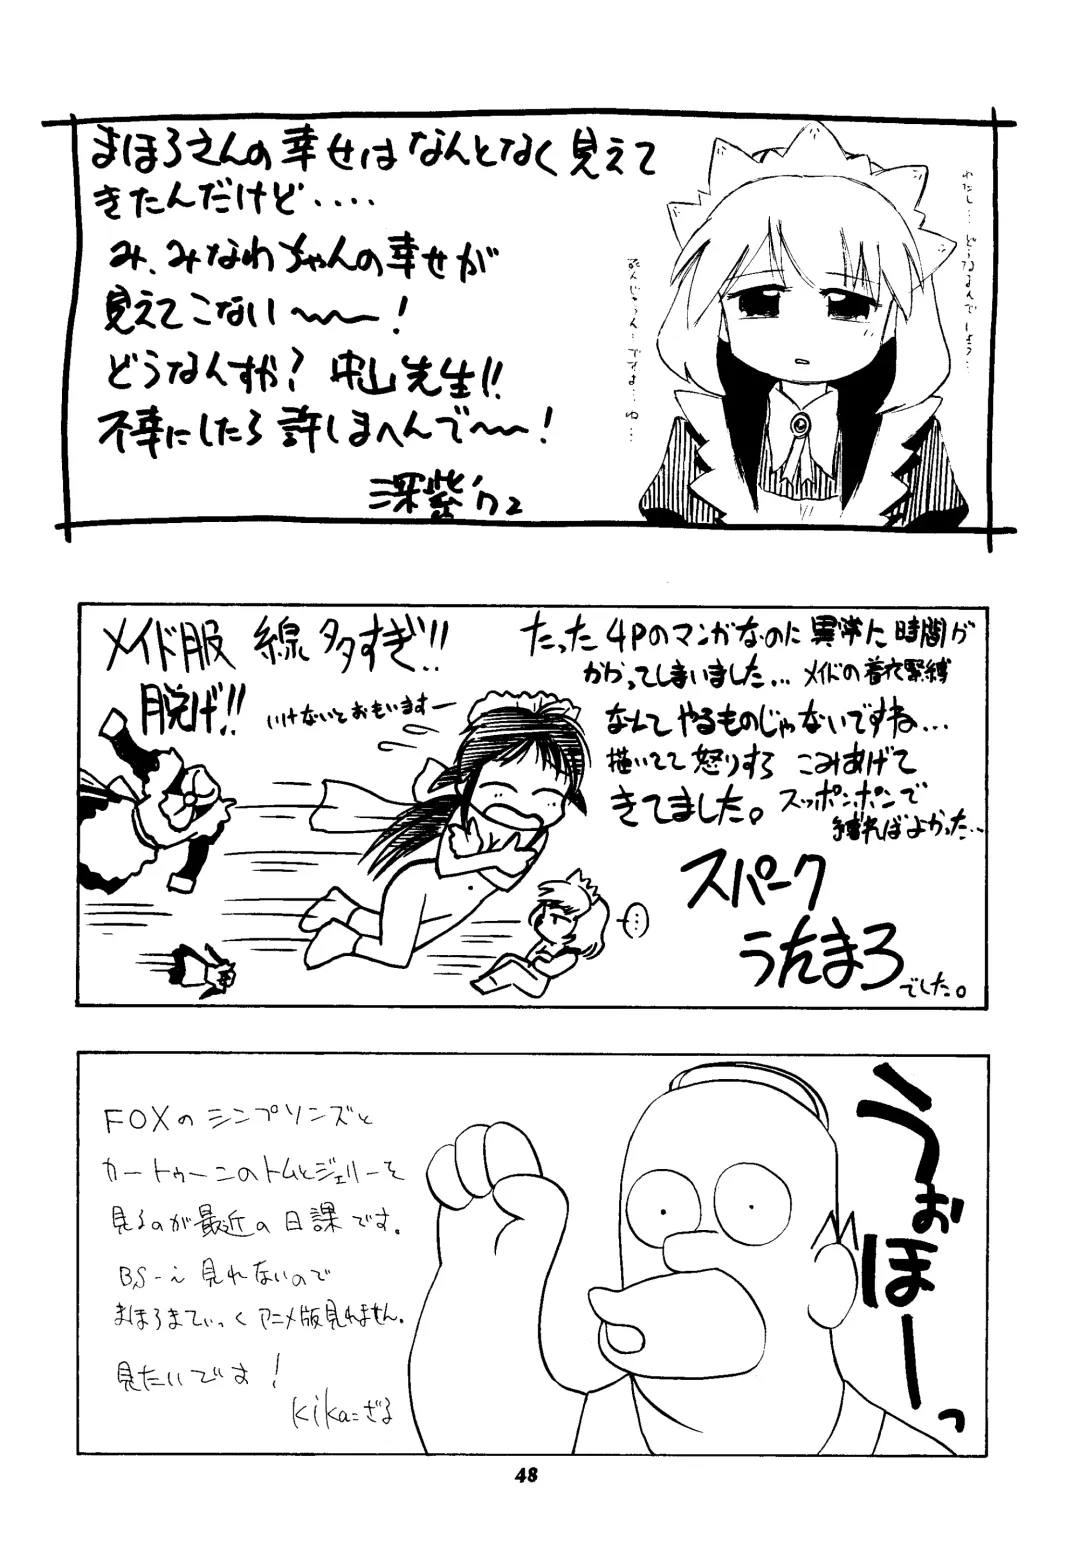 まほろさんの幸せはなんとなく見えて
きたんだけど・・・・
み、みなわちゃんの幸せが
見えてこない〜〜〜！
どうなんすか？中山先生!!
不幸にしたら許しまへんで〜〜！
深紫'02
わたし…どうなるんでしょう…
メイド服 線多すぎ!!
脱げ!!
いけないとおもいますー
たった4Pのマンガなのに異常に時間が
かかってしまいました... メイドの着衣緊縛
なんてやるものじゃないですね...
描いてて怒りすら こみあげて
きてました。スッポンポンで
縛ればよかった…
…
スパーク
うたまろ
でした。
FOXのシンプソンズと
カートゥーンのトムとジェリーを
見るのが最近の日課です。
BS-i見れないので
まほろまてぃっくアニメ版見れません。
見たいです！
kikaざる
うぉほーっ
48